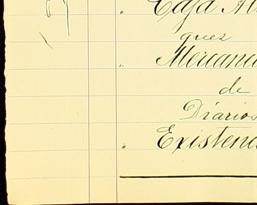 Caja Al
ques
Mercanc
de
Diarios
Existenc